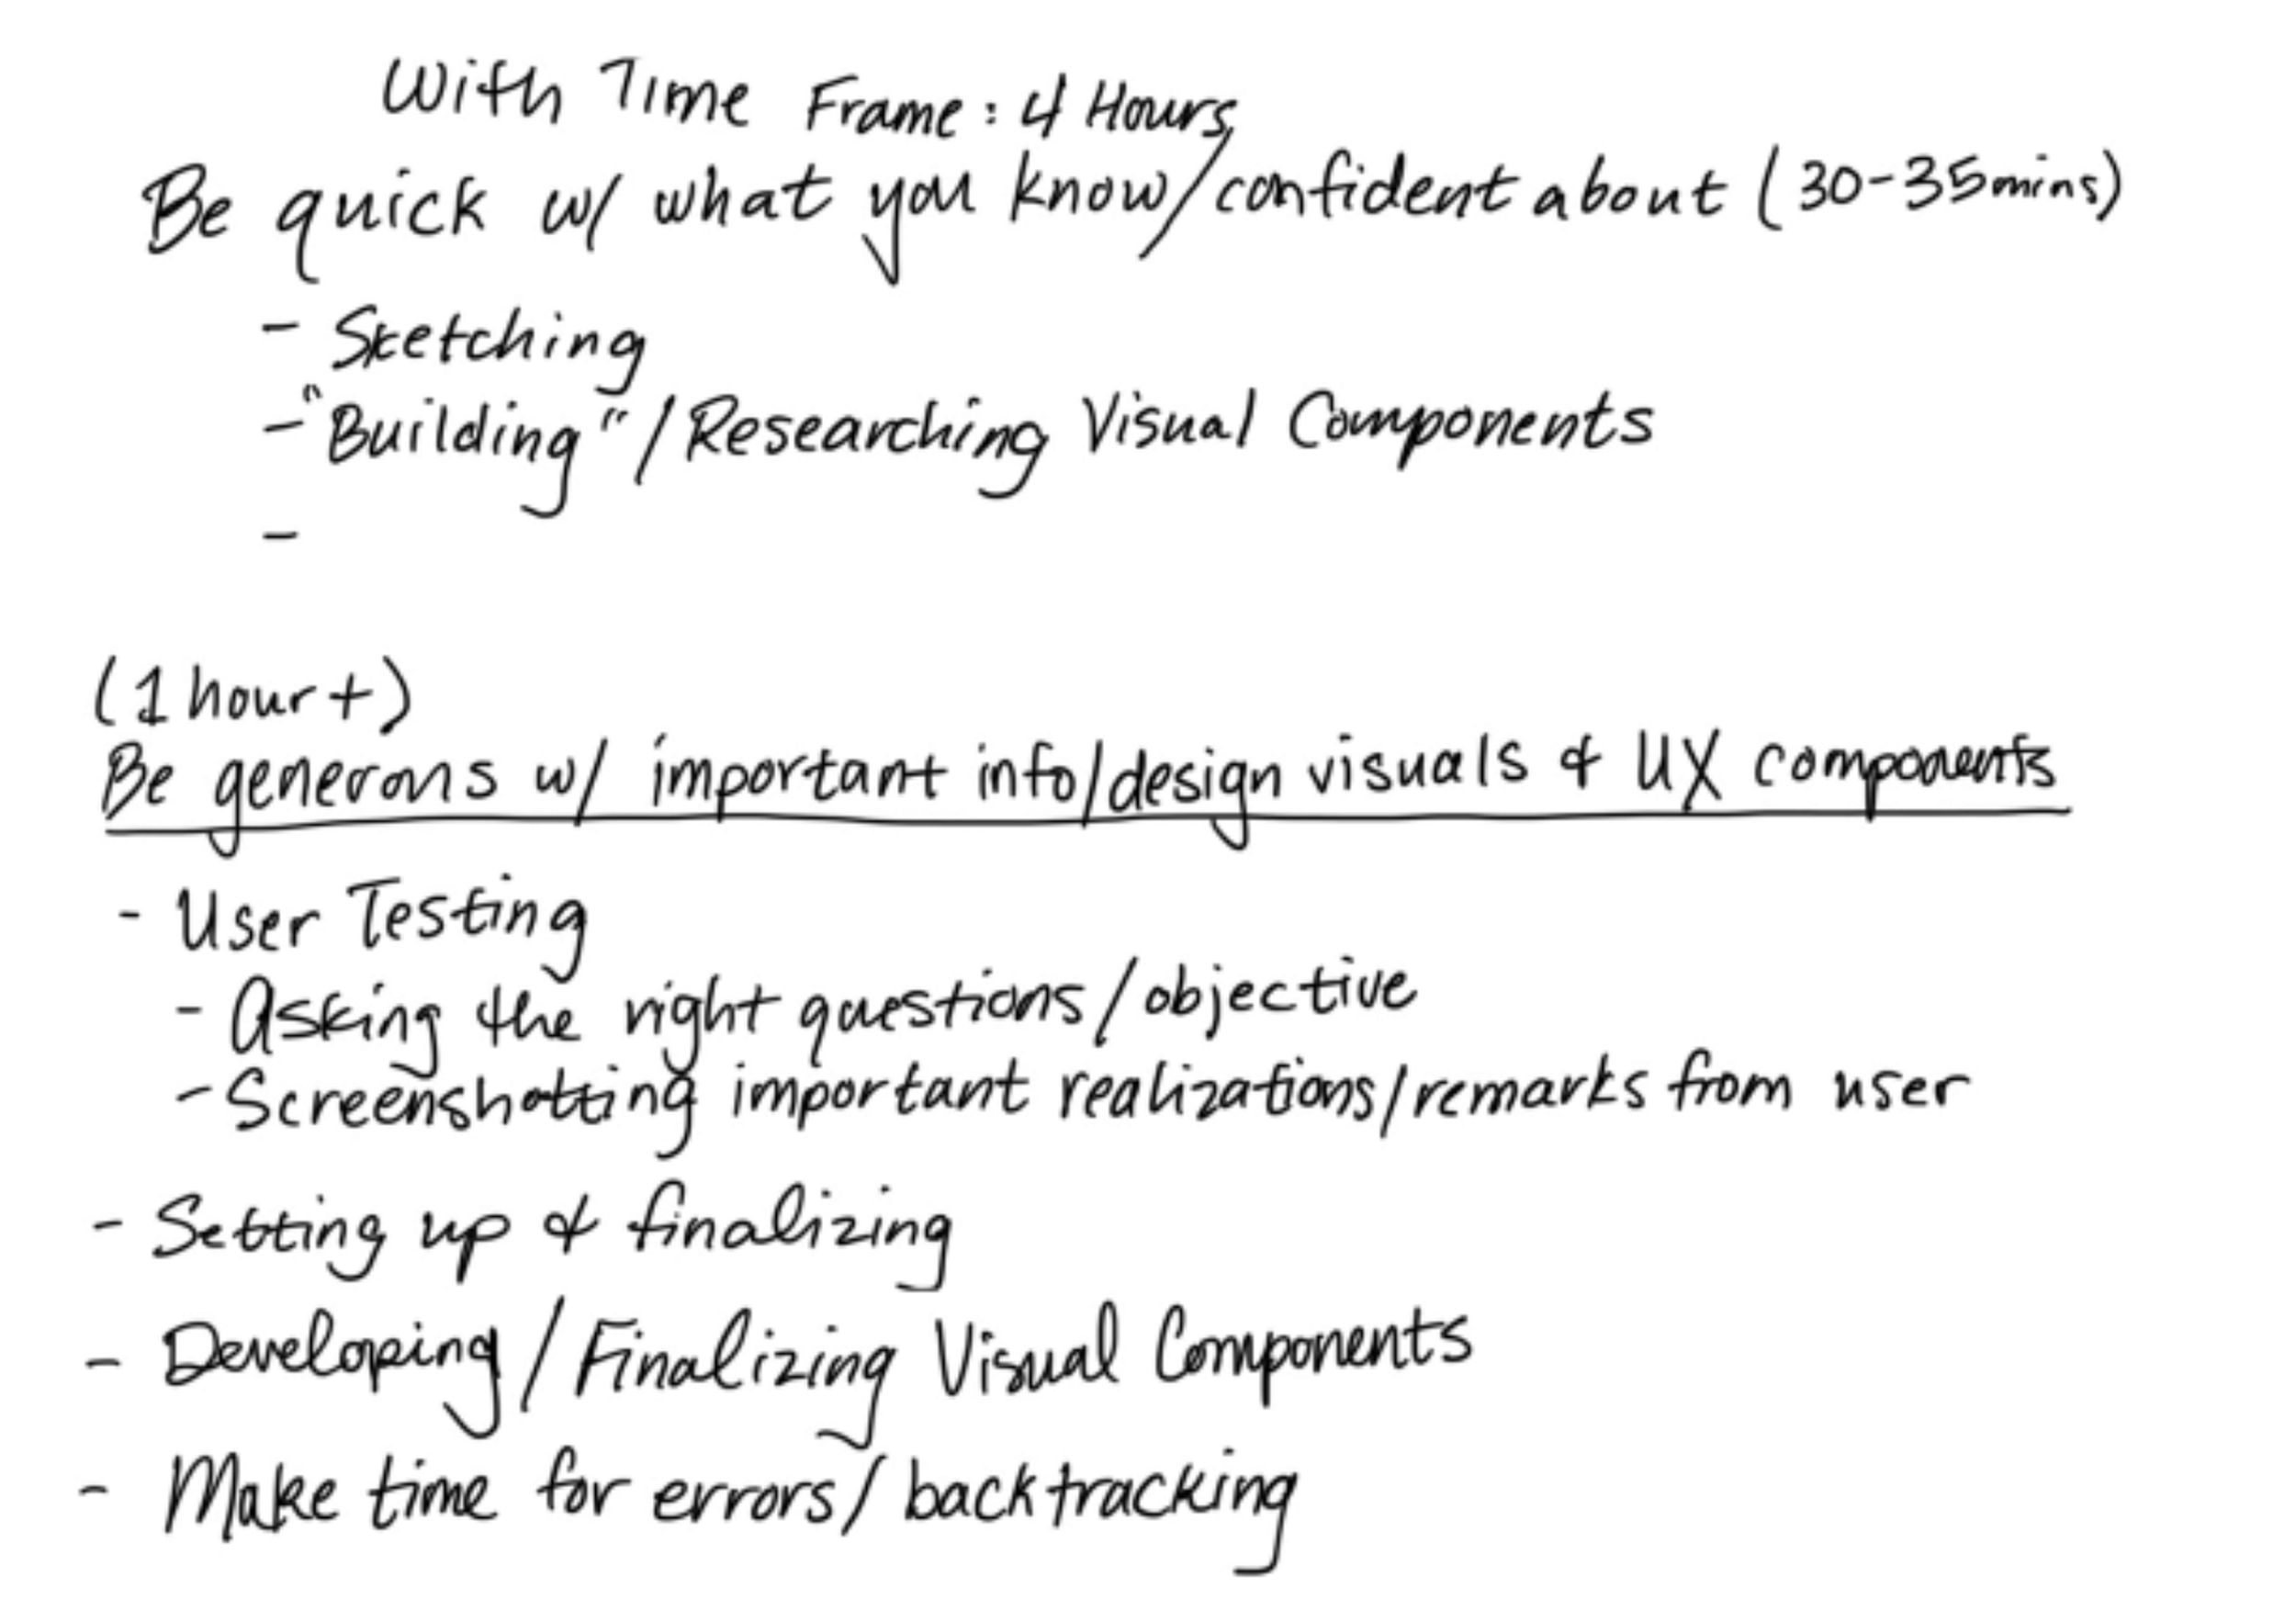 With Time Frame : 4 Hours
Be quick w/ what you know/confident about (30-35mins)
- Sketching
- "Building" / Researching Visual Components
-
(1 hour +)
Be generous w/ important info/design visuals & UX components
- User Testing
- Asking the right questions/objective
- Screenshotting important realizations/remarks from user
- Setting up & finalizing
- Developing / Finalizing Visual Components
- Make time for errors/backtracking